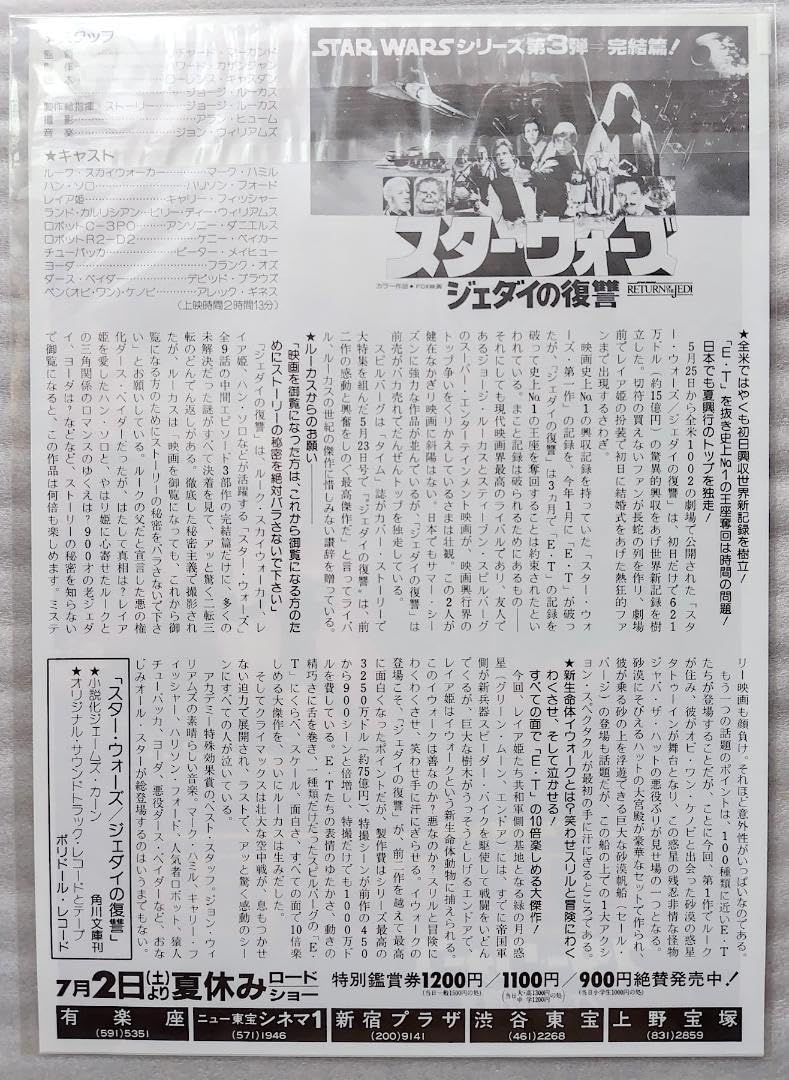 STAR WARSシリーズ第3弾=完結篇!
スタッフ
製作総指揮・ストーリー……ジョージ・ルーカス
撮影……アラン・ヒューム
音楽……ジョン・ウィリアムズ
★キャスト
ルーク・スカイウォーカー……マーク・ハミル
ハン・ソロ……ハリソン・フォード
レイア姫……キャリー・フィッシャー
ランド・カルリシアン・ビリー・ディー・ウィリアムス
ロボットC-3PO……アンソニー・ダニエルス
ロボットR2-D2……ケニー・ベイカー
チューバッカ……ピーター・メイヒュー
ヨーダ……フランク・オズ
ダース・ベイダー……デビッド・プラウズ
ベン(オビ・ワン)・ケノービ……アレック・ギネス
(上映時間2時間13分)
スター・ウォーズ
カラー作品●FOX映画
ジェダイの復讐 RETURN OF THE JEDI
★全米ではやくも初日興収世界新記録を樹立!
「E・T」を抜き史上No.1の王座奪回は時間の問題!
日本でも夏興行のトップを独走!
5月25日から全米1002の劇場で公開された「スタ
ー・ウォーズ/ジェダイの復讐」は、初日だけで621
万ドル(約15億円)の驚異的興収をあげ世界新記録を樹
立した。切符の買えないファンが長蛇の列を作り、劇場
前でレイア姫の扮装で初日に結婚式をあげた熱狂的ファ
ンまで出現するさわぎ。
映画史上No.1の興収記録を持っていた「スター・ウォ
ーズ・第一作」の記録を、今年1月に「E・T」が破っ
たが、「ジェダイの復讐」は3ヵ月で「E・T」の記録を
破って史上No.1の王座を奪回することは約束されたとい
われている。まこと記録は破られるためにあるもの——
それにしても現代映画界最高のライバルであり、友人で
あるジョージ・ルーカスとスティーブン・スピルバーグ
のスーパー・エンターテインメント映画が、映画興行界の
トップ争いをくりかえしているさまは壮観。この2人が
健在なかぎり映画に斜陽はない。日本でもサマー・シー
ズンに強力な作品が並んでいるが、「ジェダイの復讐」は
前売がバカ売れでだんぜんトップを独走している。
スピルバーグは「タイム」誌がカバー・ストーリーで
大特集を組んだ5月23日号で『「ジェダイの復讐」は、前
二作の感動と興奮をしのぐ最高傑作だ』と言ってライバ
ル、ルーカスの世紀の傑作に惜しみない讃辞を贈っている。
★ルーカスからのお願い——
「映画を御覧になった方は、これから御覧になる方のた
めにストーリーの秘密を絶対バラさないで下さい」
「ジェダイの復讐」は、ルーク・スカイウォーカー、レ
イア姫、ハン・ソロなどが活躍する「スター・ウォーズ」
全9話の中間エピソード3部作の完結篇だけに、多くの
未解決だった謎がすべて決着を見て、アッと驚く二転三
転のどんでん返しがある。徹底した秘密主義で撮影され
たが、ルーカスは「映画を御覧になっても、これから御
覧になる方のためにストーリーの秘密をバラさないで下さ
い」とお願いしている。ルークの父だと宣言した悪の権
化ダース・ベイダーだったが、はたして真相は?レイア
姫を愛したハン・ソロと、やはり姫に心寄せたルークと
の三角関係のロマンスのゆくえは?900才の老ジェダ
イ、ヨーダは?などなど、ストーリーの秘密を知らない
で御覧になると、この作品は何倍も楽しめます。ミステ
リー映画も顔負け。それほど意外性がいっぱいなのである。
もう一つの話題のポイントは、100種類に近いE・T
たちが登場することだが、ことに今回、第1作でルーク
が住み、彼がオビ・ワン・ケノービと出会った砂漠の惑星
タトゥーインが舞台となり、この惑星の残忍非情な怪物
ジャバ・ザ・ハットの悪役ぶりが見せ場の一つとなる。
砂漠にそびえるハットの大宮殿が豪華なセットで作られ、
彼が乗る砂の上を浮遊できる巨大な砂漠帆船(セール・
バージ)の登場も話題だが、この船の上での1大アクシ
ョン・スペクタクルが最初の手に汗にぎるところである。
★新生命体イウォークとは?笑わせスリルと冒険にわく
わくさせ、そして泣かせる/
すべての面で「E・T」の10倍楽しめる大傑作!
今回、レイア姫たち共和軍側の基地となる緑の月の惑
星(グリーン・ムーン、エンドア)には、すでに帝国軍
側が新兵器スピーダー・バイクを駆使して戦闘をいどん
でくるが、巨大な樹木がうっそうとしげるエンドアで、
レイア姫はイウォークという新生命体動物に捕えられる。
このイウォークは善なのか?悪なのか?スリルと冒険に
わくわくさせ、笑わせ手に汗にぎらせる。イウォークの
登場こそ、「ジェダイの復讐」が、前二作を越えて最高
に面白くなったポイントだが、製作費はシリーズ最高の
3250万ドル(約75億円)、特撮シーンが前作の450
から900シーンと倍増し、特撮だけでも1000万ド
ルを費している。E・Tたちの表情のゆたかさ、動きの
精巧さに舌を巻き、一種類だけだったスピルバーグの「E・
T」にくらべ、スケール、面白さ、すべての面で10倍楽
しめる大傑作を、ついにルーカスは生みだした。
そしてクライマックスは壮大な空中戦が、息もつかせ
ない迫力で展開され、ラストで、アッと驚く感動のシー
ンにすべての人が泣いている。
アカデミー特殊効果賞のベスト・スタッフ。ジョン・ウィ
リアムズの素晴らしい音楽。マーク・ハミル、キャリー・フ
ィッシャー、ハリソン・フォード、人気者ロボット、猿人
チューバッカ、ヨーダ、悪役ダース・ベイダーなど、おな
じみオール・スターが総登場するのはいうまでもない。
「スター・ウォーズ/ジェダイの復讐」
★小説化ジェームズ・カーン 角川文庫刊
★オリジナル・サウンドトラック・レコードとテープ
ポリドール・レコード
7月2日(土)より夏休みロードショー
特別鑑賞券1200円/1100円/900円絶賛発売中!
(当日一般1500円の処)
(当日大・高1300円 中学1200円の処)
(当日小学生1000円の処)
有楽座 ニュー東宝シネマ1 新宿プラザ 渋谷東宝 上野宝塚
(591)5351 (571)1946 (200)9141 (461)2268 (831)2859